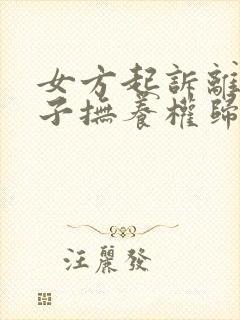 女方起訴離
子撫養權歸
汪麗發